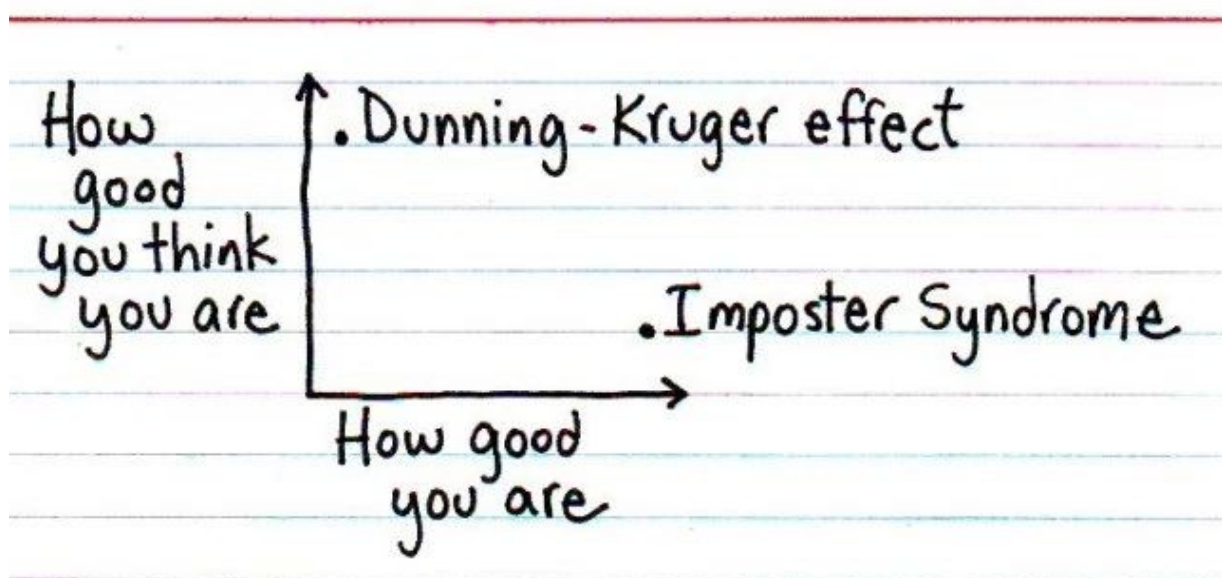 How
good
you think
you are
Dunning-Kruger effect
Imposter Syndrome
How good
you are